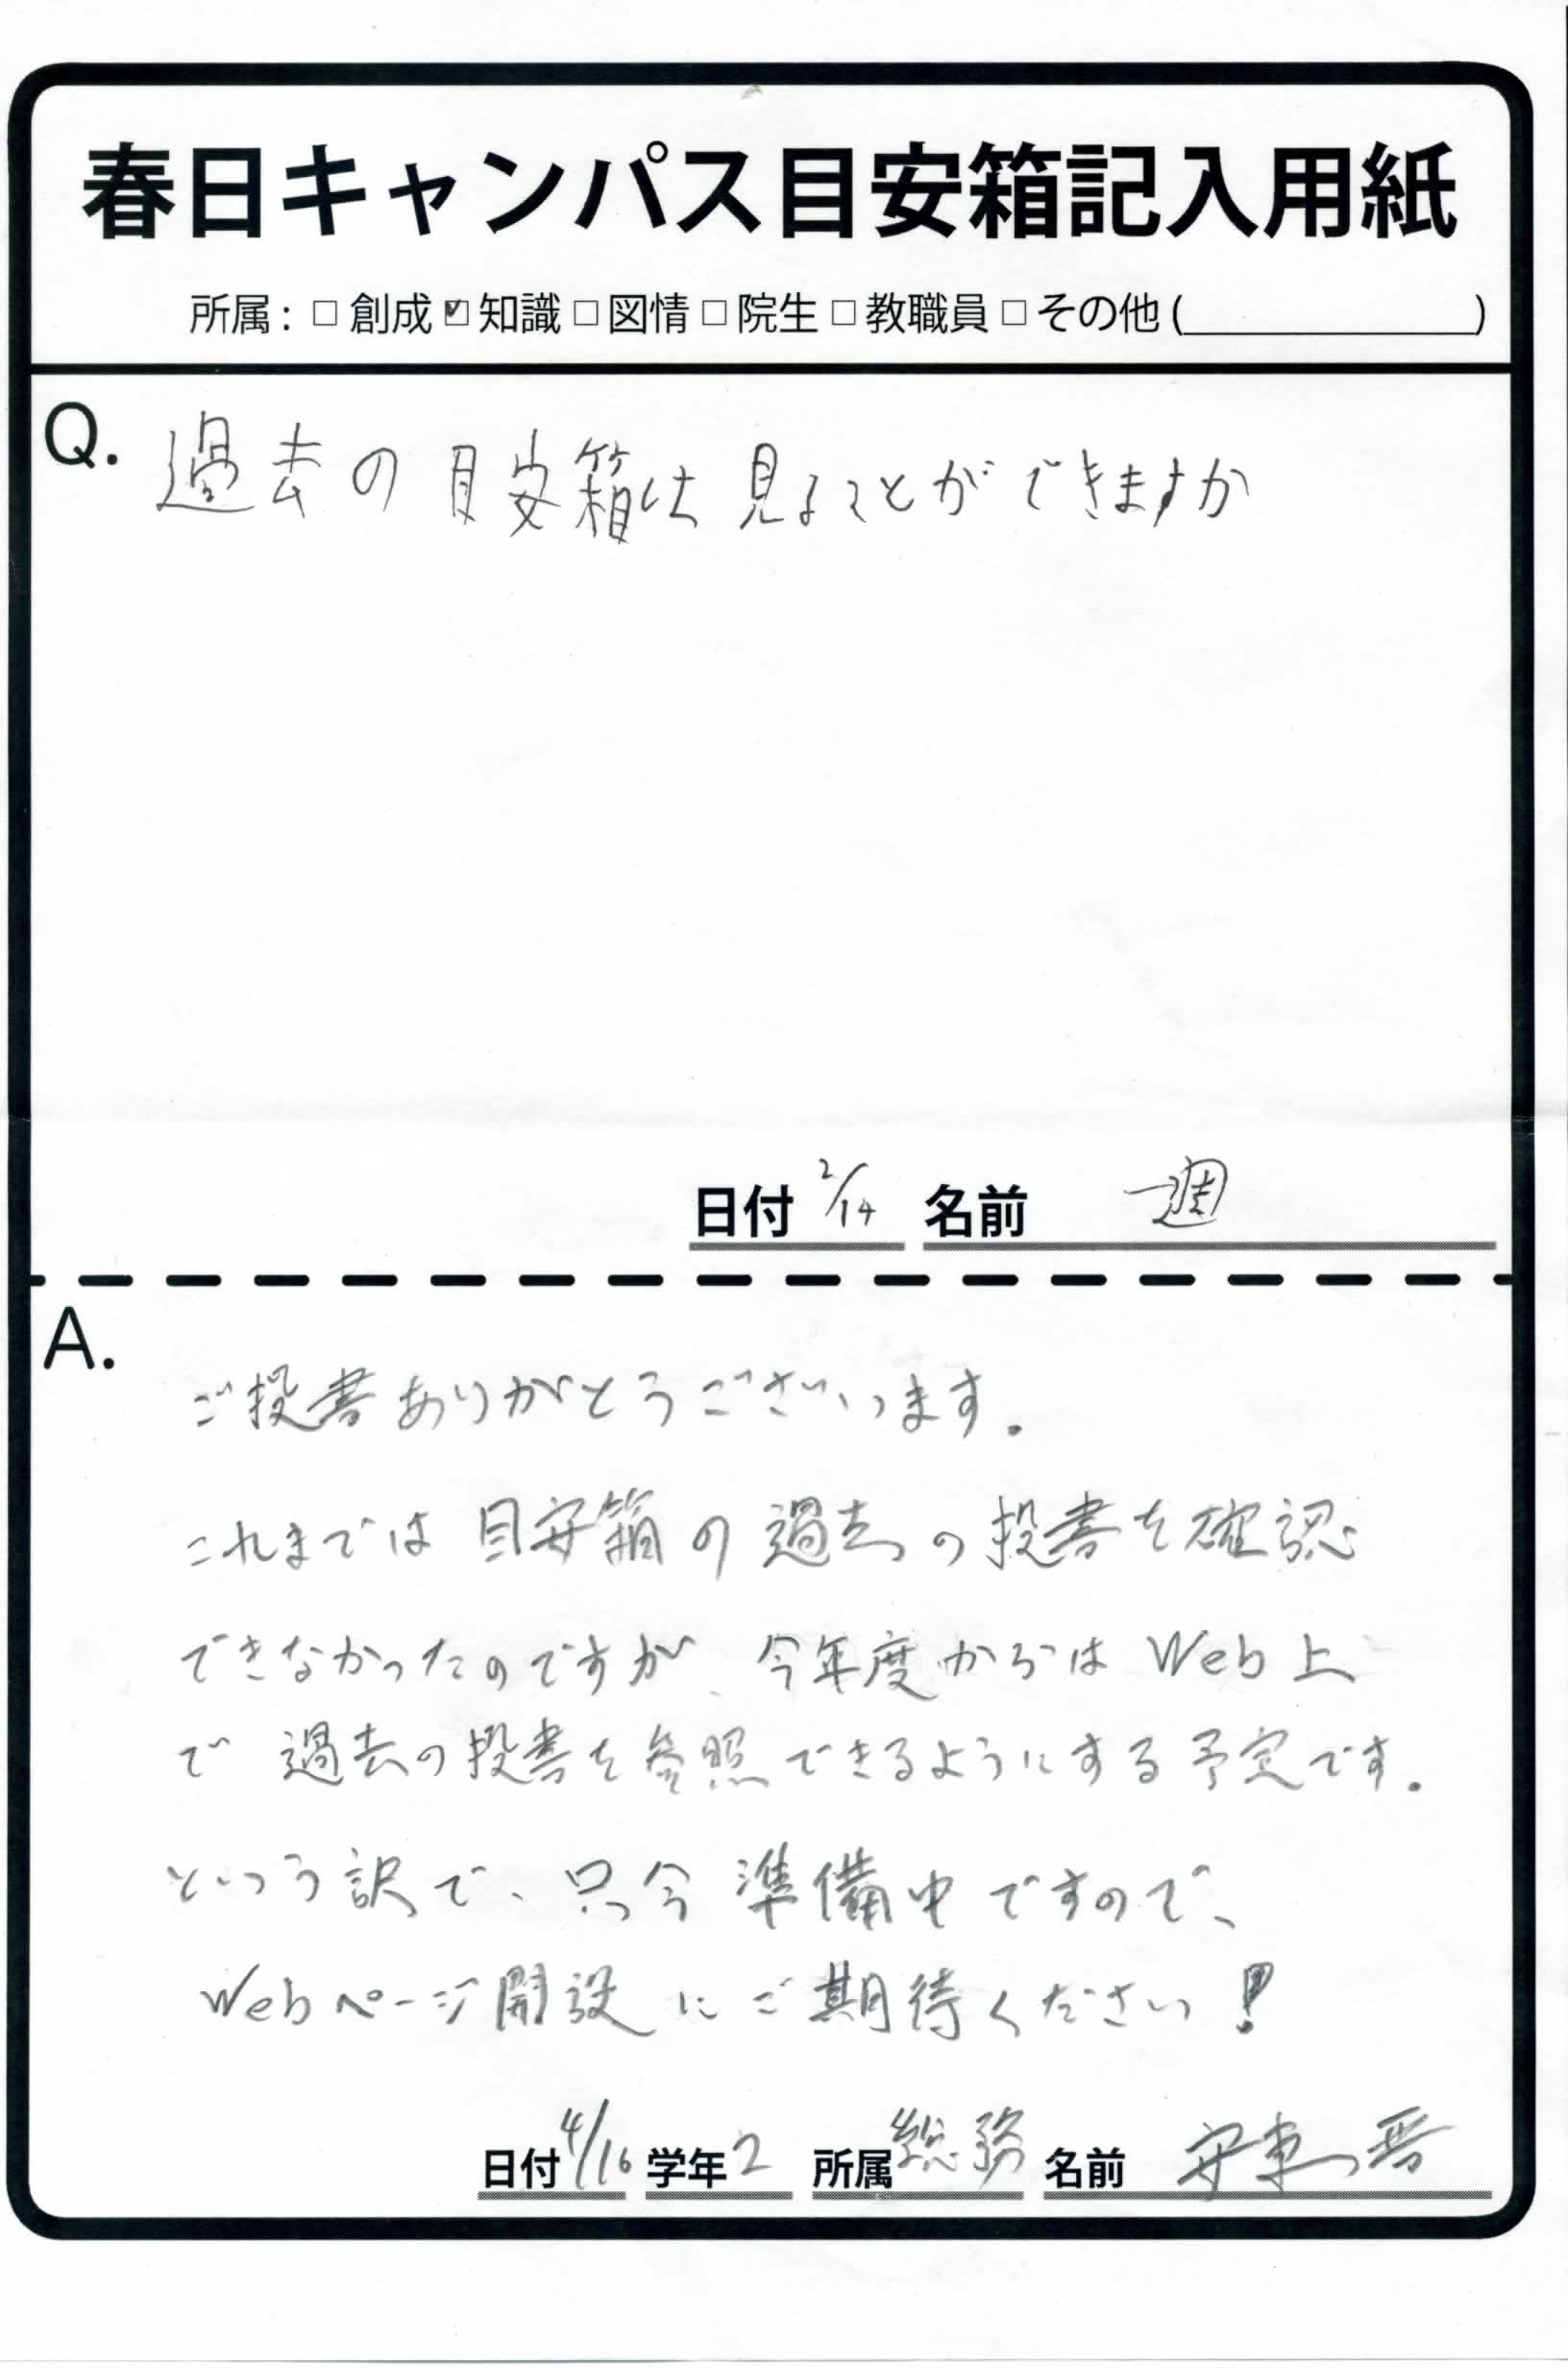 春日キャンパス目安箱記入用紙
所属: □ 創成 ☑ 知識 □ 図情 □ 院生 □ 教職員 □ その他 (　　　)
Q. 過去の目安箱は見ることができますか
日付 2/14 名前 一週
A.
ご投書ありがとうございます。
これまでは目安箱の過去の投書を確認
できなかったのですが、今年度からは Web上
で 過去の投書を参照できるようにする予定です。
という訳で、只今 準備中ですので、
Webページ開設にご期待ください!
日付 4/16 学年 2 所属 総務 名前 安東 晋